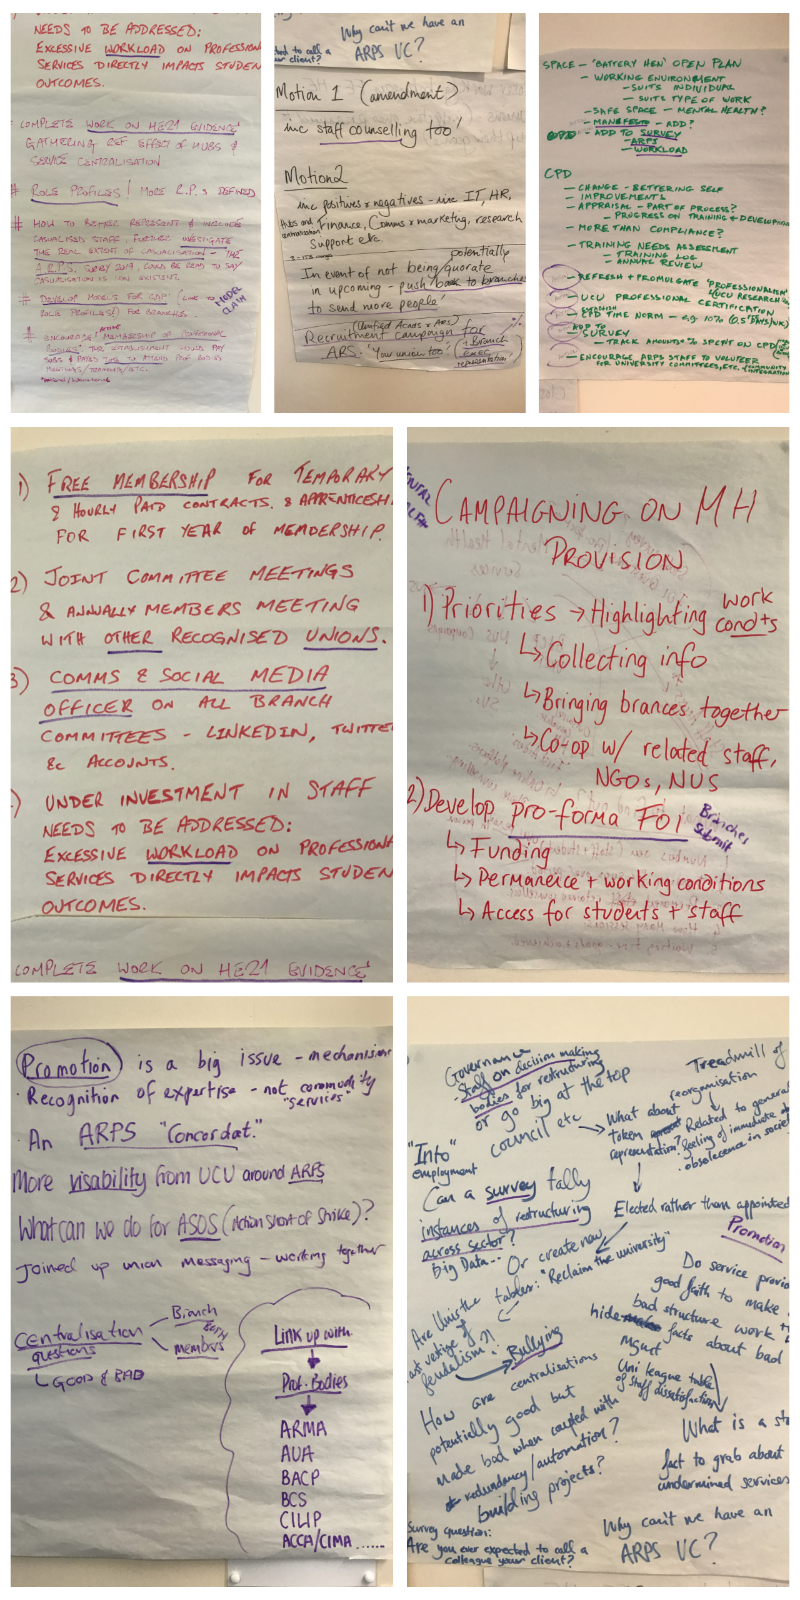 NEEDS TO BE ADDRESSED:
EXCESSIVE WORKLOAD ON PROFESSION
SERVICES DIRECTLY IMPACTS STUDEN
OUTCOMES.
COMPLETE WORK ON HE21 EVIDENCE
GATHERING REF EFFECT OF HUBS &
SERVICE CENTRALISATION
# ROLE PROFILES! MORE R.P.s DEFINED
# HOW TO BETTER REPRESENT & INCLUDE
CASUALISED STAFF, FURTHER INVESTIGATE
THE REAL EXTENT OF CASUALISATION - THE
A.R.P.S. SURVEY 2019, COULD BE READ TO SAY
CASUALISATION IS NON EXISTENT.
# DEVELOP MODELS FOR CDP' (LINK TO
ROLE PROFILES!) FOR BRANCHES.
MODEL
CLAIM
# ENCOURAGE! ACTIVE MEMBERSHIP OF PROFESSIONAL
BODIES' THE ESTABLISHMENT COULD PAY
SUBS & PAYES TIME TO ATTEND PROF BODIES
MEETINGS/TRAINING/ETC.
Why can't we have an
ARPS VC?
to call a
ur client?
Motion 1 (amendment)
inc staff counselling too'
Motion 2
inc positives & negatives - inc IT, HR,
Hubs and centralisation
Finance, Comms & marketing, research
support etc.
In event of not being potentially quorate
in upcoming - push back to branches
to send more people'
(Unified Acads & ARS)
Recruitment campaign for
ARS. 'Your union too'
(+ Branch
exec
representation)
SPACE - 'BATTERY HEN' OPEN PLAN
- WORKING ENVIRONMENT
- SUITS INDIVIDUAL
- SUITS TYPE OF WORK
- SAFE SPACE - MENTAL HEALTH?
- MANIFESTO - ADD?
CPD - ADD TO SURVEY
- ARPS
- WORKLOAD
CPD
- CHANGE - BETTERING SELF
- IMPROVEMENTS
- APPRAISAL - PART OF PROCESS?
- PROGRESS ON TRAINING & DEVELOPM
- MORE THAN COMPLIANCE?
- TRAINING NEEDS ASSESSMENT
- TRAINING LOG
- ANNUAL REVIEW
- REFRESH & PROMULGATE 'PROFESSIONALISM'
UCU RESEARCH
- UCU PROFESSIONAL CERTIFICATION
- ESTABLISH CPD TIME NORM - e.g. 10% (0.5 DAYS/WK)
- ADD TO SURVEY
- TRACK AMOUNT & % SPENT ON CPD
- ENCOURAGE ARPS STAFF TO VOLUTEER
FOR UNIVERSITY COMMITTEES, ETC.
COMMUNITY
INTEGRATION
1) FREE MEMBERSHIP FOR TEMPORARY
& HOURLY PAID CONTRACTS. & APPRENTICESH
FOR FIRST YEAR OF MEMBERSHIP.
2) JOINT COMMITTEE MEETINGS
& ANNUALLY MEMBERS MEETING
WITH OTHER RECOGNISED UNIONS.
3) COMMS & SOCIAL MEDIA
OFFICER ON ALL BRANCH
COMMITTEES - LINKEDIN, TWITTE
&c ACCOUNTS.
) UNDER INVESTMENT IN STAFF
NEEDS TO BE ADDRESSED:
EXCESSIVE WORKLOAD ON PROFESSION
SERVICES DIRECTLY IMPACTS STUDEN
OUTCOMES.
COMPLETE WORK ON HE21 EVIDENCE
CAMPAIGNING ON MH
PROVISION
1) Priorities → Highlighting work
cond'ts
↳ Collecting info
↳ Bringing brances together
↳ Co-op w/ related staff,
NGOs, NUS
2) Develop pro-forma FOI
Branches
submit
↳ Funding
↳ Permanence + working conditions
↳ Access for students + staff
Promotion is a big issue - mechanisms
· Recognition of expertise - not commodity
"services"
· An ARPS "Concordat."
More visability from UCU around ARPS
What can we do for ASOS (Action Short of Strike)?
Joined up union messaging - working together
Centralisation
questions
Branch
BOTH
members
↳ GOOD & BAD
Link up with
Prof. Bodies
ARMA
AUA
BACP
BCS
CILIP
ACCA/CIMA......
Governance
- Staff on decision making
bodies for restructuring
or go big at the top
council etc
Treadmill of
reorganisation
Related to general
feeling of immediate
obsolecence in societ
What about
token
representation?
"Into"
employment
Can a survey tally
instances of restructuring
across sector?
big Data...
Elected rather than appointed
Promotion
Or create new
tables: "Reclaim the university"
Are Unis the
ast vestige of
feudalism?!
Bullying
Do service provid
good faith to make
bad structure work
hide facts about bad
mgmt
Uni league table
of staff dissatisfaction
How are centralisations
potentially good but
made bad when coupled with
redundancy/automation?
building projects?
What is a sta
fact to grab about
undermined services
Survey question:
Are you ever expected to call a
colleague your client?
Why can't we have an
ARPS VC?